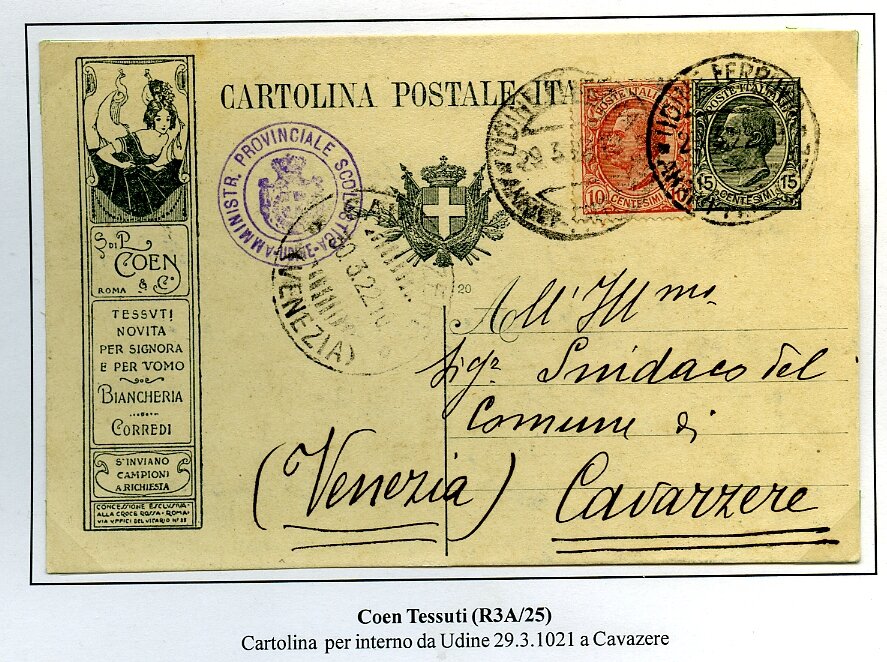 CARTOLINA POSTALE ITA
S. DI P. COEN & C.
ROMA
TESSUTI
NOVITA
PER SIGNORA
E PER VOMO
BIANCHERIA
CORREDI
S'INVIANO
CAMPIONI
A RICHIESTA
CONCESSIONE ESCLUSIVA
ALLA CROCE ROSSA - ROMA
VIA VFFICI DEL VICARIO Nº
AMMINISTR. PROVINCIALE SCOLASTICA - UDINE -
3.22
(VENEZIA)
UDINE
29.3
POSTE ITALIANE
10 CENTESIMI
UDINE FERR
POSTE ITALIANE
15 CENTESIMI 15
20
All'Ill mo
Sigr Sindaco del
Comune di
Cavarzere
(Venezia)
Coen Tessuti (R3A/25)
Cartolina per interno da Udine 29.3.1021 a Cavazere